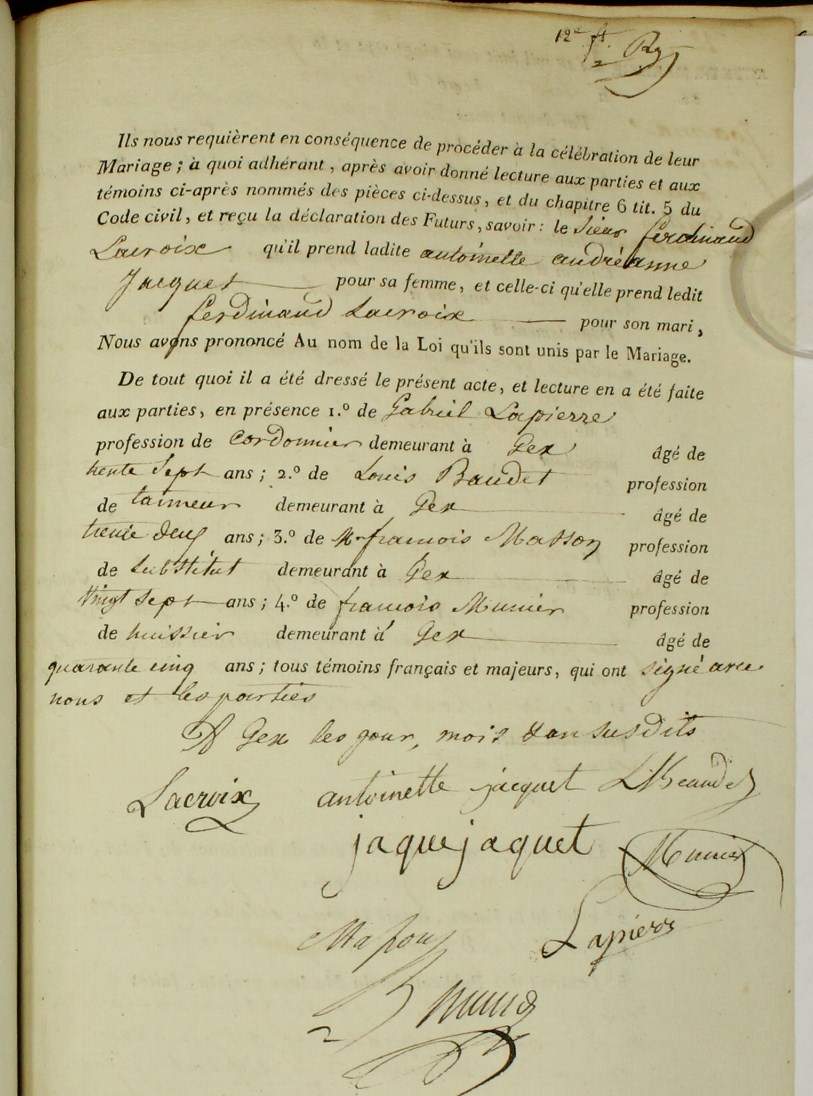 12e ft. Rg
Ils nous requièrent en conséquence de procéder à la célébration de leur
Mariage ; à quoi adhérant, après avoir donné lecture aux parties et aux
témoins ci-après nommés des pièces ci-dessus, et du chapitre 6 tit. 5 du
Code civil, et reçu la déclaration des Futurs, savoir : le Sieur ferdinand
Lacroix qu'il prend ladite antoinette andréanne
Jacquet pour sa femme, et celle-ci qu'elle prend ledit
ferdinand Lacroix pour son mari,
Nous avons prononcé Au nom de la Loi qu'ils sont unis par le Mariage.
De tout quoi il a été dressé le présent acte, et lecture en a été faite
aux parties, en présence 1.º de Gabriel Lapierre
profession de Cordonnier demeurant à Gex âgé de
trente Sept ans ; 2.º de Louis Baudet profession
de tanneur demeurant à Gex âgé de
trente deux ans ; 3.º de Mr françois Masson profession
de Substitut demeurant à Gex âgé de
Vingt Sept ans ; 4.º de françois Munier profession
de huissier demeurant à Gex âgé de
quarante cinq ans ; tous témoins français et majeurs, qui ont signé avec
nous et les parties
A Gex les jour, mois & an susdits
Lacroix antoinette jacquet L Beaudet
jaque jaquet Munier
Masson Lapierre